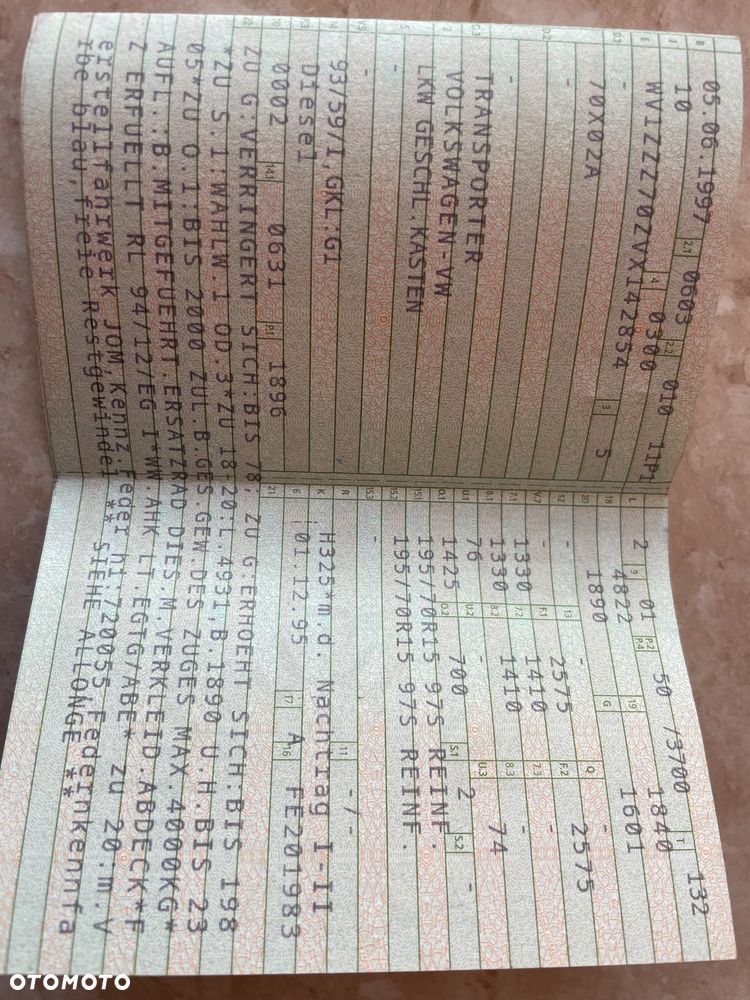 B 05.06.1997 2.1 0603 2.2 010 11P1
J 10 4 0300
E WV1ZZZ70ZVX142854 3 5
D.1 -
70X02A
D.2 -
-
D.3 TRANSPORTER
2 VOLKSWAGEN-VW
5 LKW GESCHL.KASTEN
V.9 -
14 93/59/I,GKL:G1
P.3 Diesel
10 0002 14.1 0631 P.1 1896
L 2 9 01 P.2 P.4 50 /3700 T 132
18 4822 19 1840
20 1890 G 1601
12 - 13 2575 Q -
V.7 - F.1 2575 F.2 2575
7.1 1330 7.2 1410 7.3 -
8.1 1330 8.2 1410 8.3 -
U.1 76 U.2 - U.3 74
O.1 1425 O.2 700 S.1 2 S.2 -
15.1 195/70R15 97S REINF.
15.2 195/70R15 97S REINF.
15.3 -
R - 11 -/-
K H325*m.d. Nachtrag I-II
6 01.12.95 17 A 16 FE201983
21
22 ZU G:VERRINGERT SICH:BIS 78; ZU G:ERHOEHT SICH:BIS 198
*ZU S.1:WAHLW.1 OD.3*ZU 18-20:L.4931,B.1890 U.H.BIS 23
05*ZU O.1:BIS 2000 ZUL.B.GES.GEW.DES ZUGES MAX.4000KG*
AUFL.:B.MITGEFUEHRT.ERSATZRAD DIES.M.VERKLEID.ABDECK*F
Z ERFUELLT RL 94/12/EG I*WW.AHK LT.EGTG/ABE* zu 20:m.V
erstellfahrwerk JOM,Kennz.Feder hi:720055 Federnkennfa
rbe blau,freie Restgewindel ** SIEHE ALLONGE **
OTOMOTO